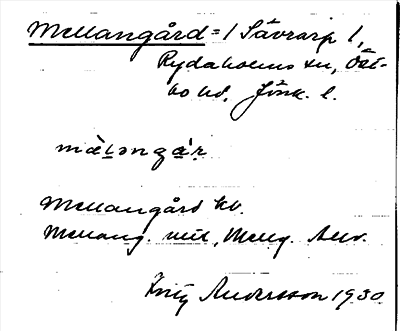 Mellangård = 1 Sävrarp 1,
Rydaholms sn, Öst-
bo hd. Jönk. l.
mà̀lǝngɑ́ʼr
Mellangård kv.
Mellang. mil, Mellg. Anv.
Andersson 1930